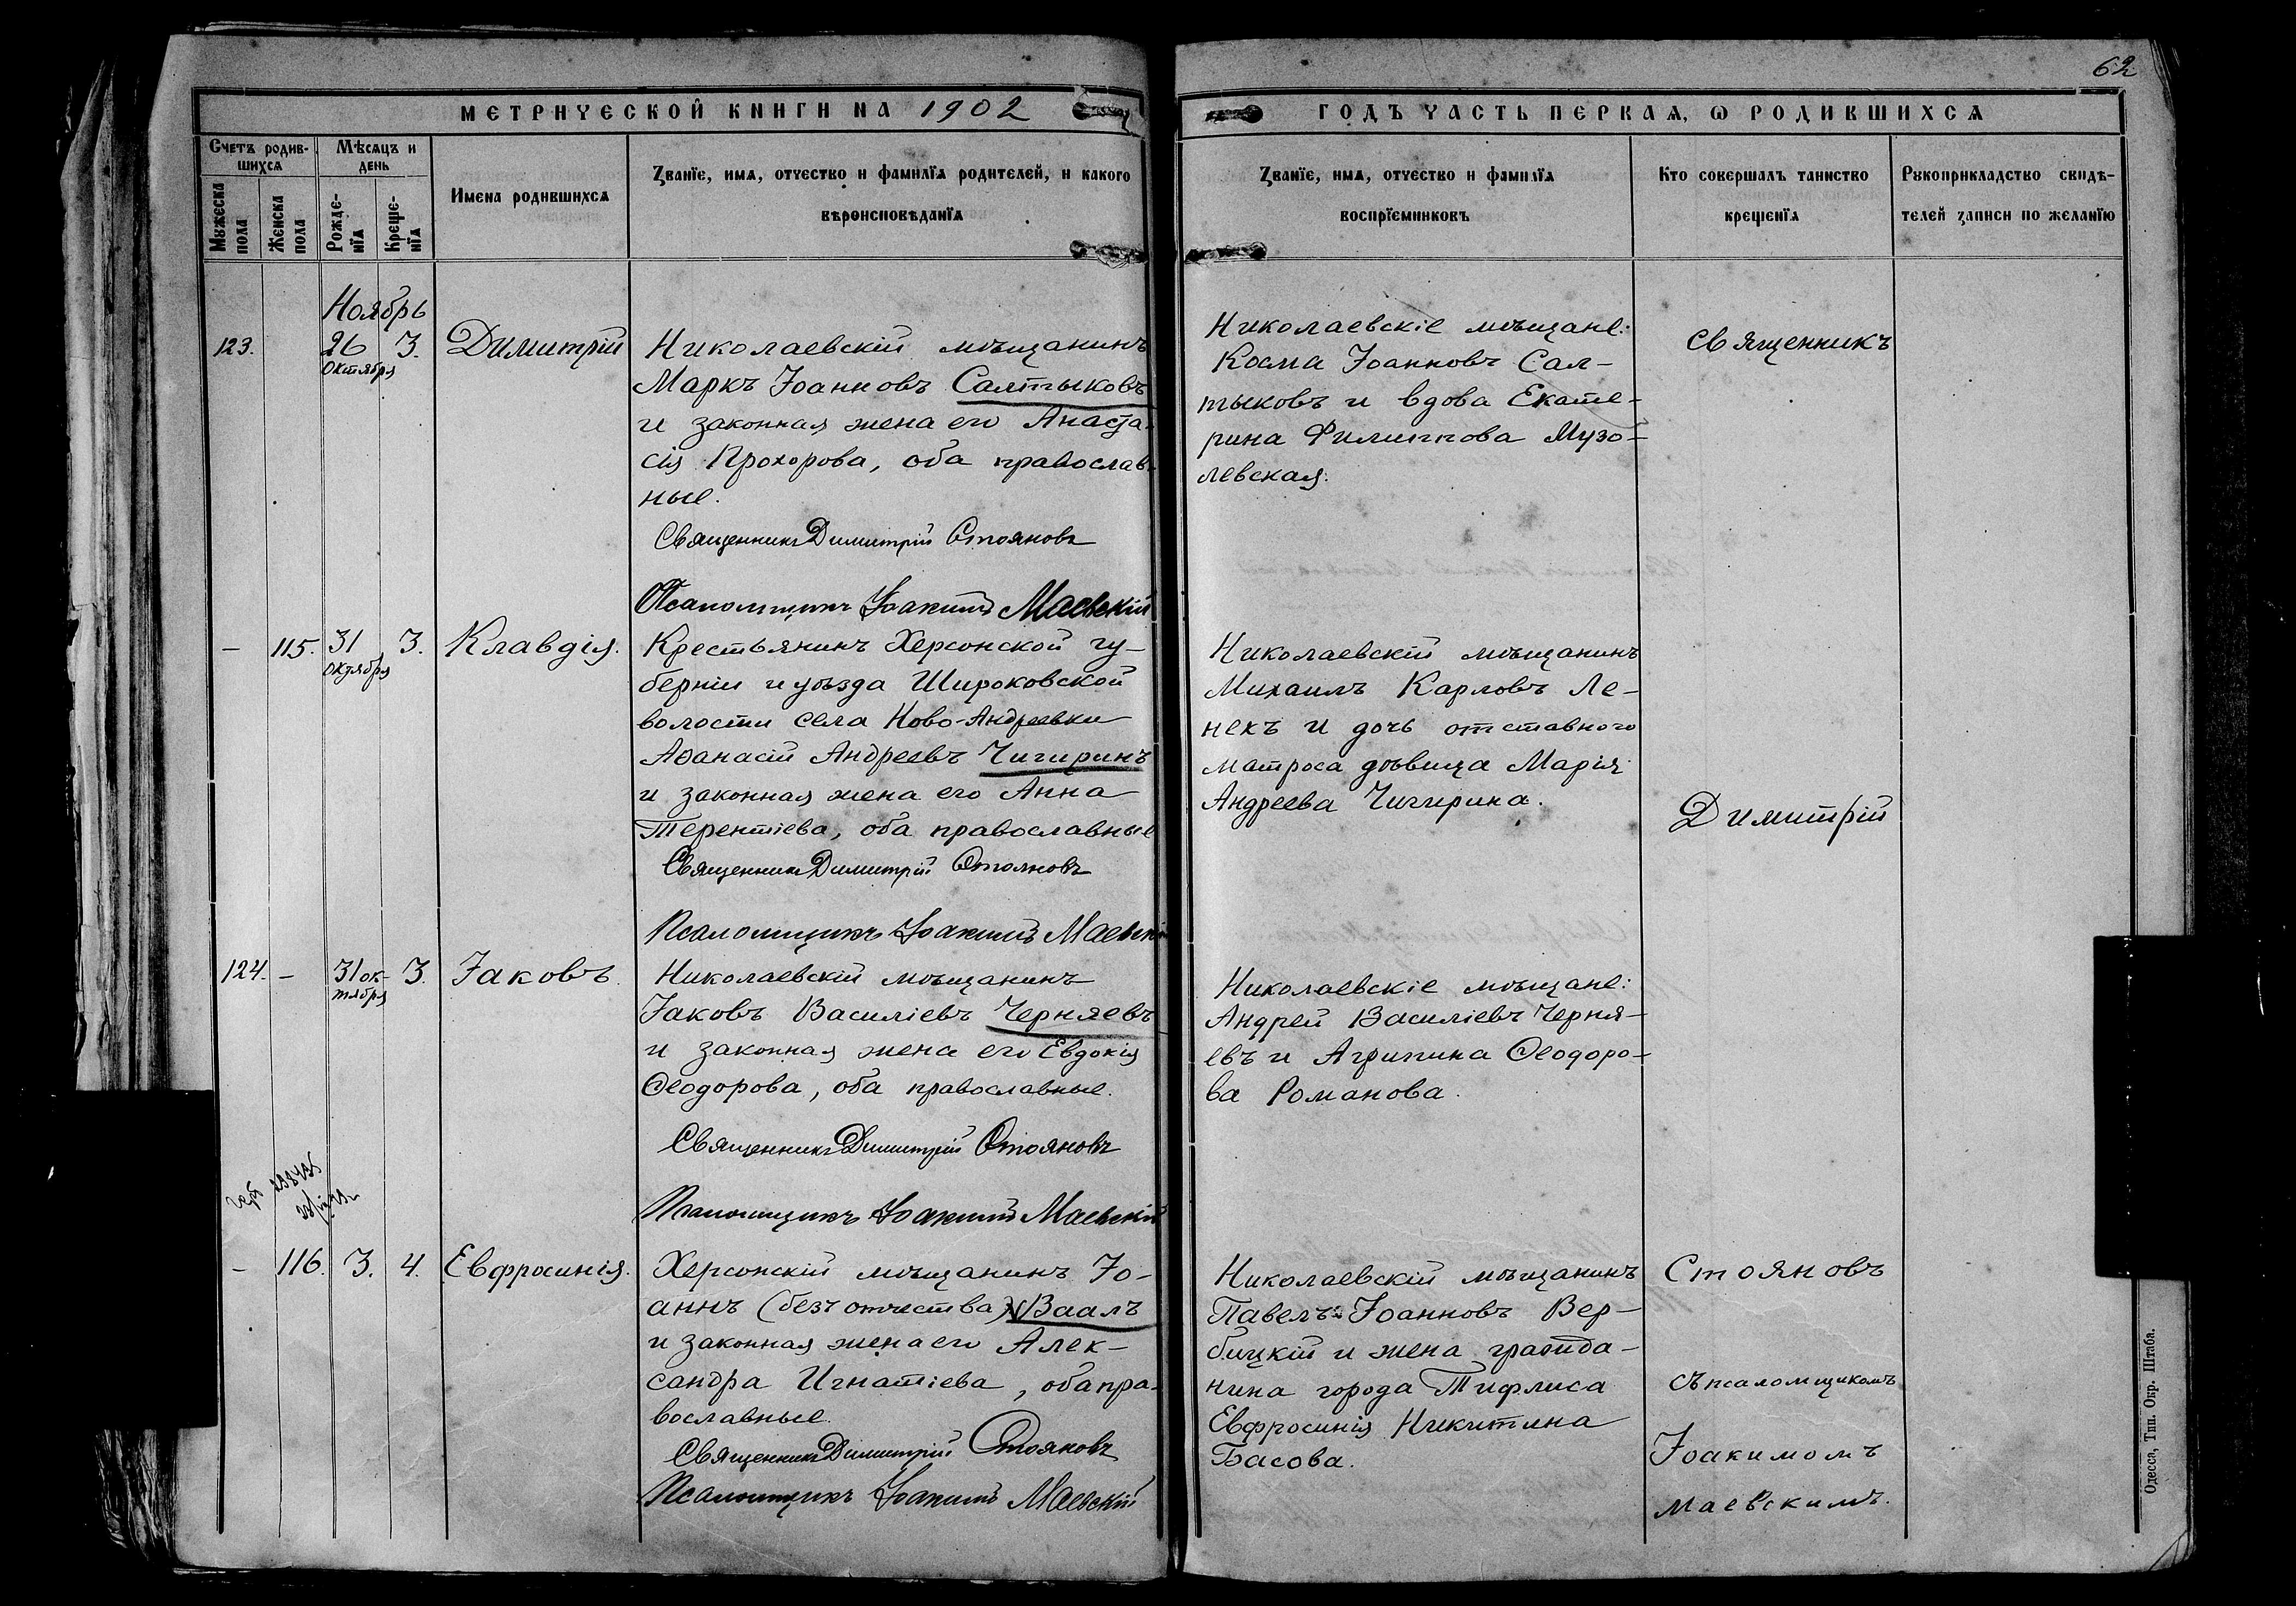 62
МЕТРИЧЕСКОЙ КНИГИ НА 1902
ГОДЪ ЧАСТЬ ПЕРВАЯ, Ѡ РОДИВШИХСЯ
Счетъ родив-
шихся
Мѣсяцъ и
день
Мужеска
пола
Женска
пола
Рожде-
нїя
Креще-
нїя
Имена родившихся
Званїе, имя, отчество и фамилїя родителей, и какого
вѣроисповѣданїя
Званїе, имя, отчество и фамилїя
воспрїемниковъ
Кто совершалъ таинство
крещенїя
Рукоприкладство свидѣ-
телей записи по желанїю
Ноябрь
123.
26
октября
3.
Димитрій
Николаевскій мѣщанинъ
Маркъ Іоанновъ Салтыковъ
и законная жена его Анаста-
сія Прохорова, оба православ-
ные.
Священникъ Димитрій Стояновъ
Псаломщикъ Іоакимъ Маевскій
Николаевскіе мѣщане:
Косма Іоанновъ Сал-
тыковъ и вдова Екате-
рина Филиппова Музо-
левская.
Священникъ
– 115.
31
октября
3.
Клавдія.
Крестьянинъ Херсонской гу-
берніи и уѣзда Широковской
волости села Ново-Андреевки
Аѳанасій Андреевъ Чигиринъ
и законная жена его Анна
Терентіева, оба православные
Священникъ Димитрій Стояновъ
Псаломщикъ Іоакимъ Маевскій
Николаевскій мѣщанинъ
Михаилъ Карловъ Ле-
некъ и дочь отставного
матроса дѣвица Марія
Андреева Чигирина.
Димитрій
124. –
31 ок-
тября
3.
Іаковъ.
Николаевскій мѣщанинъ
Іаковъ Василіевъ Черняевъ
и законная жена его Евдокія
Ѳеодорова, оба православные.
Священникъ Димитрій Стояновъ
Псаломщикъ Іоакимъ Маевскій
Николаевскіе мѣщане:
Андрей Василіевъ Черня-
евъ и Агрипина Ѳеодоро-
ва Романова.
– 116. 3. 4.
Евфросинія.
Херсонскій мѣщанинъ Іо-
аннъ (безъ отчества) Ваалъ
и законная жена его Алек-
сандра Игнатіева, оба пра-
вославные.
Священникъ Димитрій Стояновъ
Псаломщикъ Іоакимъ Маевскій
Николаевскій мѣщанинъ
Павелъ Іоанновъ Вер-
бицкій и жена гражда-
нина города Тифлиса
Евфросинія Никитина
Басова.
Стояновъ
съ псаломщикомъ
Іоакимомъ
Маевскимъ.
Одесса, Тип. Окр. Штаба.